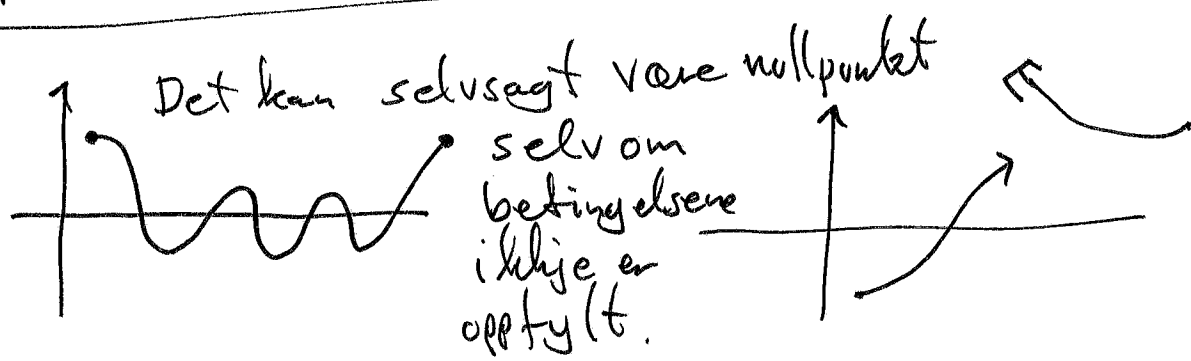 Det kan selvsagt være nullpunkt
selv om
betingelsene
ikkje er
oppfylt.